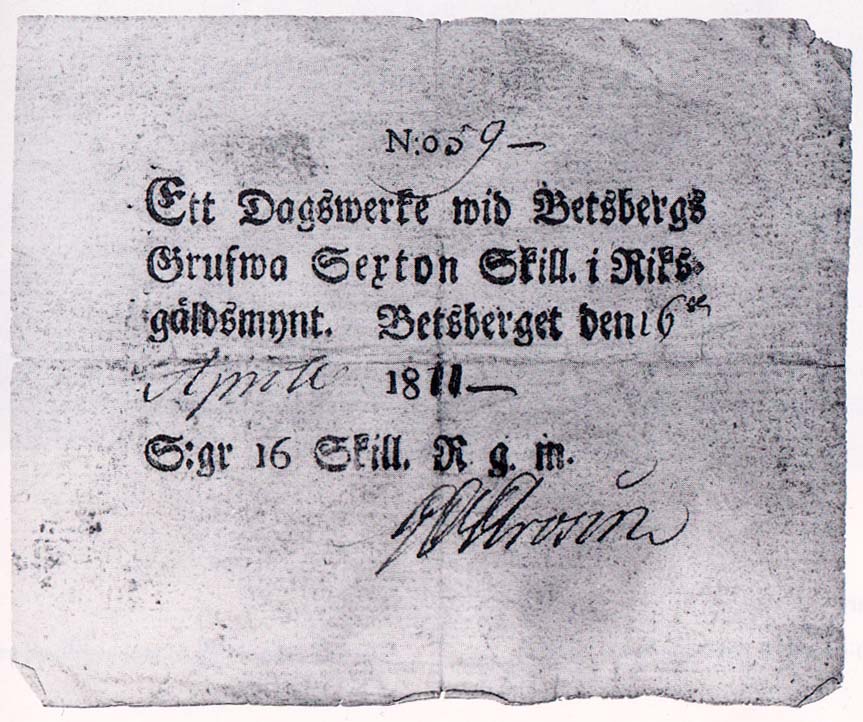 N:o 59 —
Ett Dagswerke wid Betsbergs
Grufwa Sexton Skill. i Riks-
gäldsmynt. Betsberget den 16de
Aprill 1811 —
S:gr 16 Skill. R g. m.